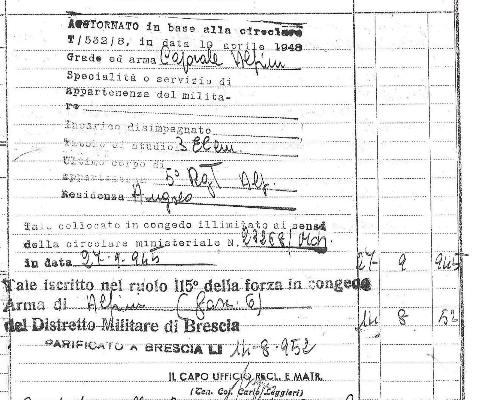 AGGIORNATO in base alla circolare
T/532/8, in data 19 aprile 1948
Grado ed arma Caporale Alpini
Specialità o servizio di
appartenenza del milita-
re
Incarico disimpegnato
Titolo di studio 3 Elem.
Ultimo corpo di
appartenenza 5° Regt Alp
Residenza
Tale collocato in congedo illimitato ai sensi
della circolare ministeriale N. 27268/
in data 27-9-945 27 9 945
Tale iscritto nel ruolo 115° della forza in congedo
Arma di Alpini (fasc. 6)
del Distretto Militare di Brescia 14 8 52
PARIFICATO A BRESCIA LI 14-8-952
IL CAPO UFFICIO RECL. E MATR.
(Ten. Col. Carlo Leggieri)